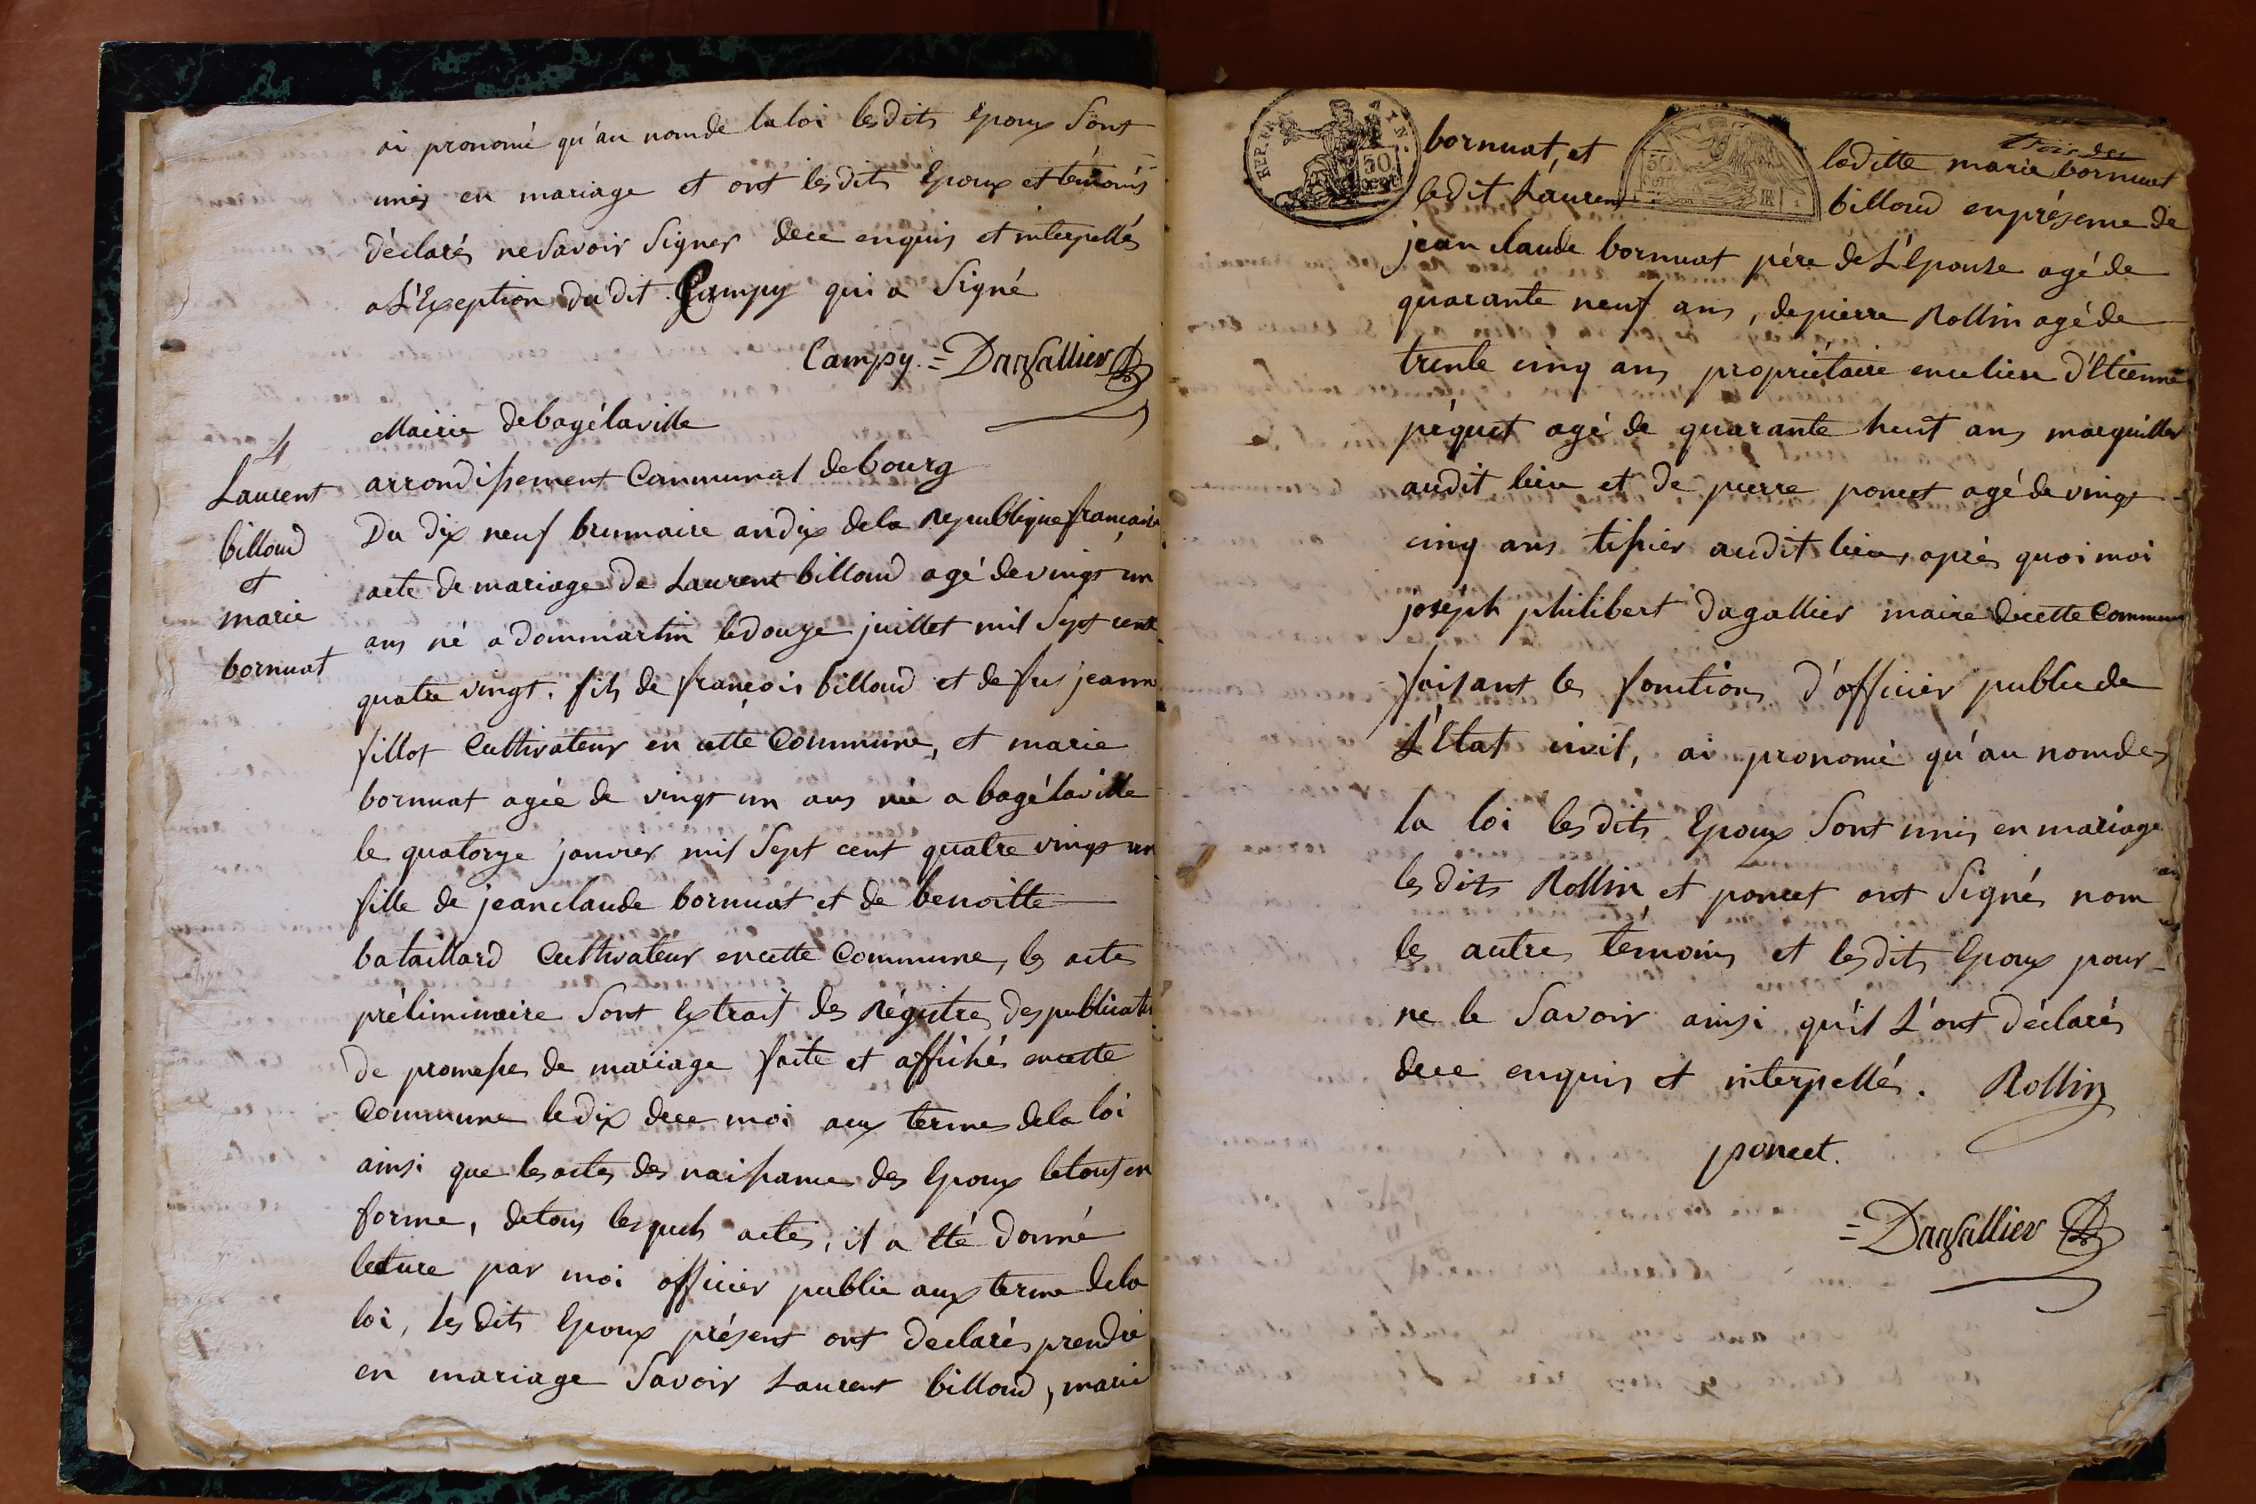 ai prononcé qu'au nom de la loi lesdits Epoux sont
unis en mariage et ont lesdits Epoux et témoins
déclarés ne savoir signer de ce enquis et interpellés
a L'Exeption dudit Campy qui a signé
Campy = Dagallier
Mairie de bagélaville
4
arrondissement Communal de bourg
Laurent
billoud
et
marie
bornuat
Du dix neuf brumaire an dix de la Republique française
acte de mariage de Laurent billoud agé de vingt un
ans né a dommartin le douze juillet mil sept cent
quatre vingt. fils de françois billoud et de fus jeanne
fillot Cultivateur en cette Commune, et marie
bornuat agée de vingt un ans née a bagélaville
le quatorze janvier mil sept cent quatre vingt un
fille de jean claude bornuat et de benoitte
bataillard Cultivateur en cette Commune, les actes
préliminaire sont Extrait des Régistres des publications
de promesses de mariage faite et affichés en cette
Commune le dix de ce moi aux termes de la loi
ainsi que les actes des naissances des Epoux le tout en
forme, de tous lesquels actes, il a Eté donné
lecture par moi officier public aux terme de la
loi, les dits Epoux présent ont déclarés prendre
en mariage Savoir Laurent billoud, marie
REP. FRA
50
cent
bornuat, et
laditte marie bornuat
ledit Laurent
billoud en présence de
jean claude bornuat pére de L'Epouse agé de
quarante neuf ans, de pierre Rollin agé de
trente cinq ans propriétaire en ce lieu d'Etienne
péquet agé de quarante huit ans marguiller
audit lieu et de pierre poncet agé de vingt
cinq ans tissier audit lieu, après quoi moi
joséph philibert dagallier maire de cette Commune
faisant les fonctions d'officier public de
L'Etat civil, ai prononcé qu'au nom de
la loi lesdits Epoux sont unis en mariage
lesdits Rollin et poncet ont signés non
les autres témoins et lesdits Epoux pour
ne le savoir ainsi qu'il L'ont déclarés
de ce enquis et interpellés. Rollin
poncet.
= Dagallier